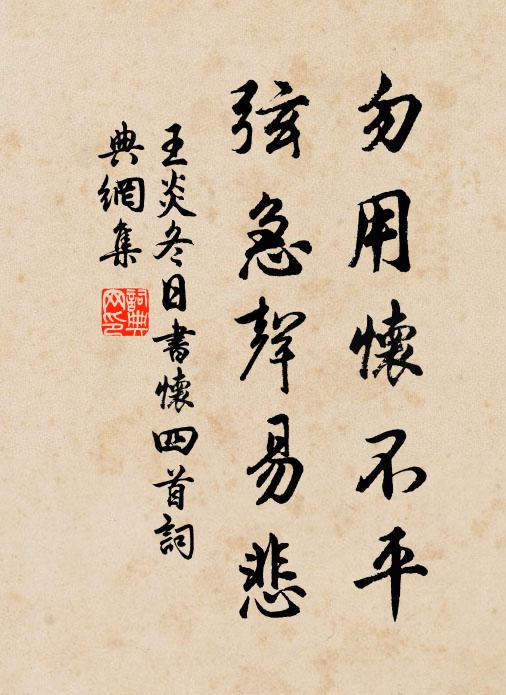 勿用懷不平
弦急聲易悲
王炎冬日書懷四首詞
典網集
詞典
网印